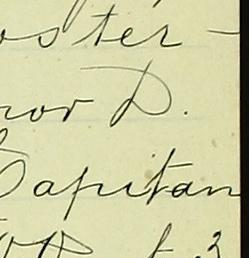 oster -
nor D.
Capitan